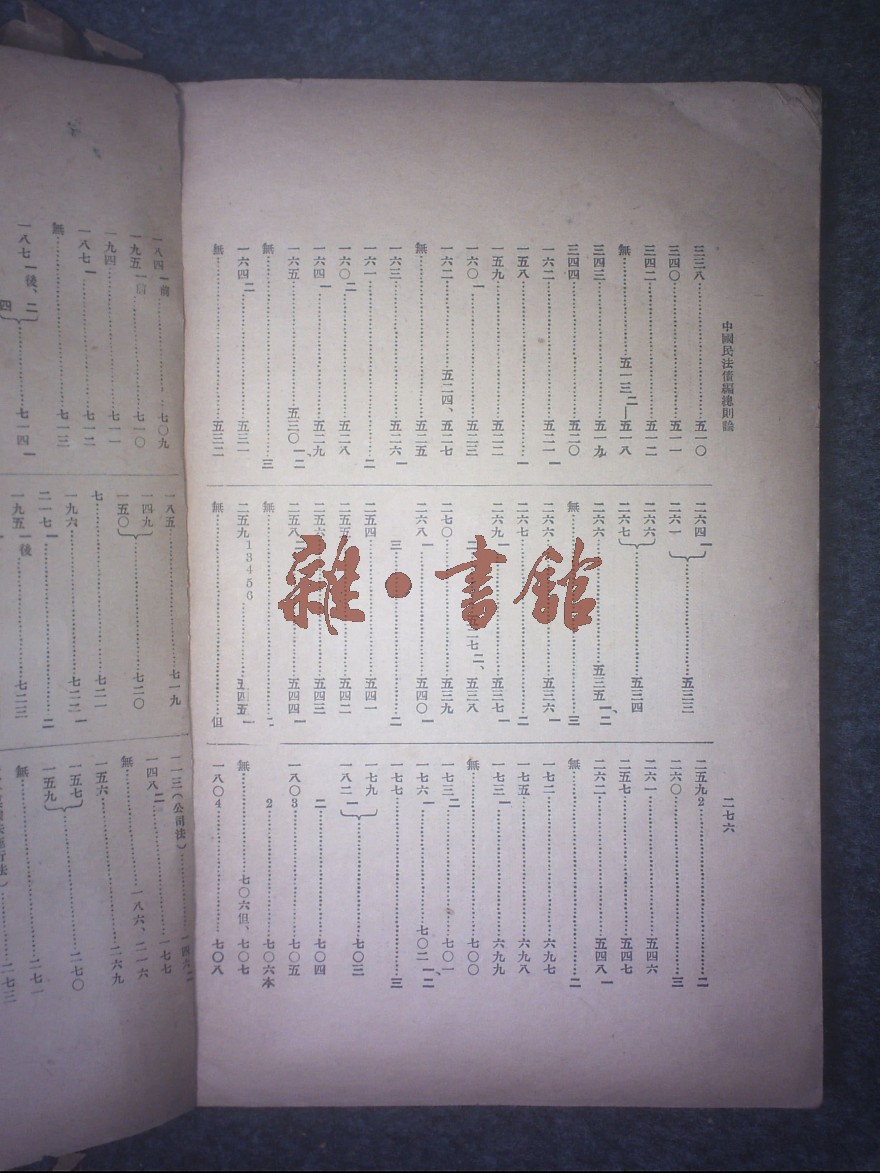 中國民法債編總則論
二七六
三三八……五一〇
三四〇……五一一
三四二……五一二
無……五一三二—五一八
三四三……五一九
三四四……五二〇
一六二……五二一一
一五八……一
一五九……五二二
一六〇一……五二三
一六二……五二四、五二七
無……五二五
一六三……五二六一
一六一……二
一六〇二……五二八
一六四一……五二九
一六五……五三〇一、二
無……三
一六四二……五三一
無……五三二
二六四一
二六一……五三三
二六六
二六七……五三四
二六六……五三五一、二
無……三
二六六……五三六一
二六七……二
二六九一……五三七一
七二、五三八
二七〇……五三九
二六八一……五四〇一
三……二
二五四……五四一
二五五……五四二
二五六……五四三
二五八……五四四一
無……二
二五九13456……五四五一
無……但
二五九2……二
二六〇……三
二六一……五四六
二五七……五四七
二六二……五四八一
無……二
一七二……六九七
一七五……六九八
一七三一……六九九
無……七〇〇
一七三二……七〇一
一七六一……七〇二一、二
一七七……三
一七九
一八二一……七〇三
二……七〇四
一八〇3……七〇五
2……七〇六本
無……七〇六但、七〇七
一八〇4……七〇八
一八四一前……七〇九
一九五一前……七一〇
一九四……七一一
一八七一……七一二
無……七一三
一八七一後、二
四……七一四一
一八五……七一九
一四九
一五〇……七二〇
七……七二一
一九六……七二二一
二一七一……二
一九五一後……七二三
二一三（公司法）……一四九二
一四八二……一七七
無……一八六、二一六
一五六……二六九
一五七
一五九……二七〇
無……二七一
行法）……二七三
雜·書館